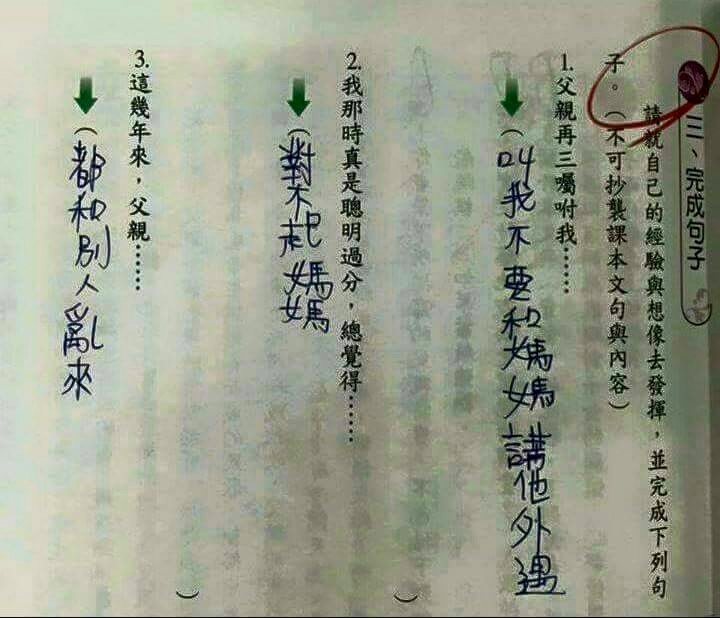 三、完成句子
請就自己的經驗與想像去發揮，並完成下列句
子。（不可抄襲課本文句與內容）
1.父親再三囑咐我……
（叫我不要和媽媽講他外遇）
2.我那時真是聰明過分，總覺得……
（對不起媽媽）
3.這幾年來，父親……
（都和別人亂來）